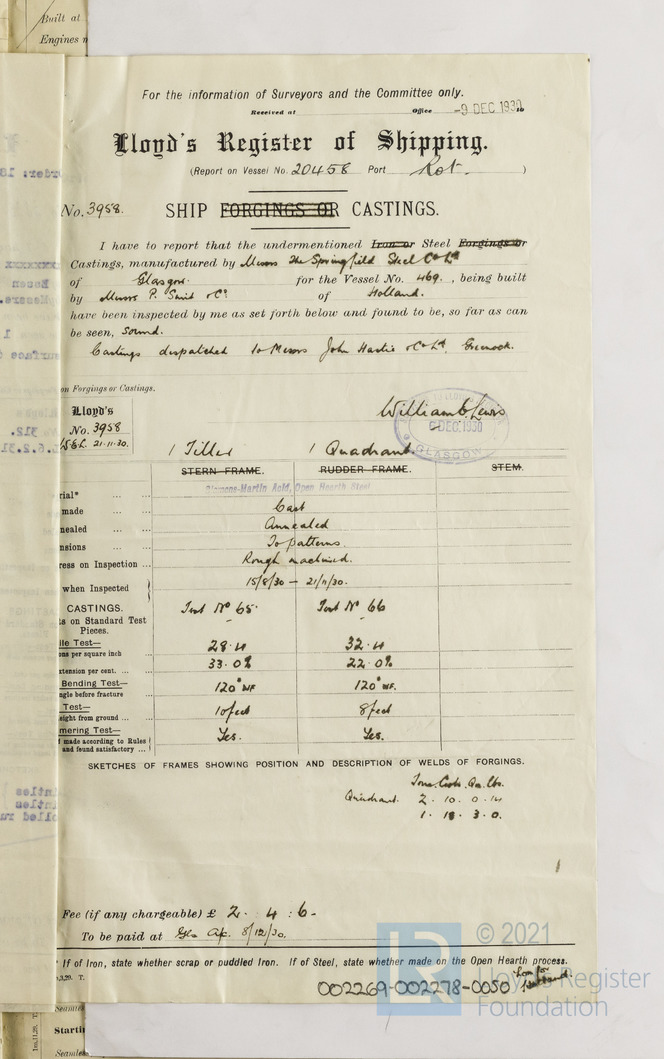 Built at
Engines
For the information of Surveyors and the Committee only.
Received at Office -9 DEC 1930
Lloyd's Register of Shipping.
(Report on Vessel No. 20458 Port Rot. )
No. 3958. SHIP FORGINGS OR CASTINGS.
I have to report that the undermentioned Iron or Steel Forgings or
Castings, manufactured by Messrs The Springfield Steel Co Ld
of Glasgow. for the Vessel No. 469. , being built
by Messrs P. Smit & Co of Holland.
have been inspected by me as set forth below and found to be, so far as can
be seen, sound.
Castings dispatched to Messrs John Hastie & Co Ld, Greenock.
on Forgings or Castings.
Lloyd's
No. 3958
21.11.30.
William C. Lewis
DEC. 1930
GLASGOW
1 Tiller 1 Quadrant
STERN-FRAME. RUDDER-FRAME. STEM.
Siemens-Martin Acid, Open Hearth Steel
rial*
made Cast
nealed Annealed
nsions To patterns.
ress on Inspection ... Rough machined.
when Inspected 15/8/30 – 21/11/30.
CASTINGS. Test No 65. Test No 66
ts on Standard Test
Pieces.
ile Test—
ons per square inch 28.4 32.4
xtension per cent. 33.0% 22.0%
Bending Test—
ngle before fracture 120° NF 120° NF.
Test—
eight from ground 10 feet 8 feet
mering Test— Yes. Yes.
made according to Rules
and found satisfactory
SKETCHES OF FRAMES SHOWING POSITION AND DESCRIPTION OF WELDS OF FORGINGS.
Tons. Cwts. Qu. Lbs.
Quadrant. 2 . 10 . 0 . 14
1 . 18 . 3 . 0.
Fee (if any chargeable) £ 2 . 4 : 6 -
To be paid at Gls Ap. 8/12/30.
* If of Iron, state whether scrap or puddled Iron. If of Steel, state whether made on the Open Hearth process.
.3.29. T.
002269-002278-0050
© 2021
Lloyd's Register
Foundation
LR
Seamless
Starti
Seamles